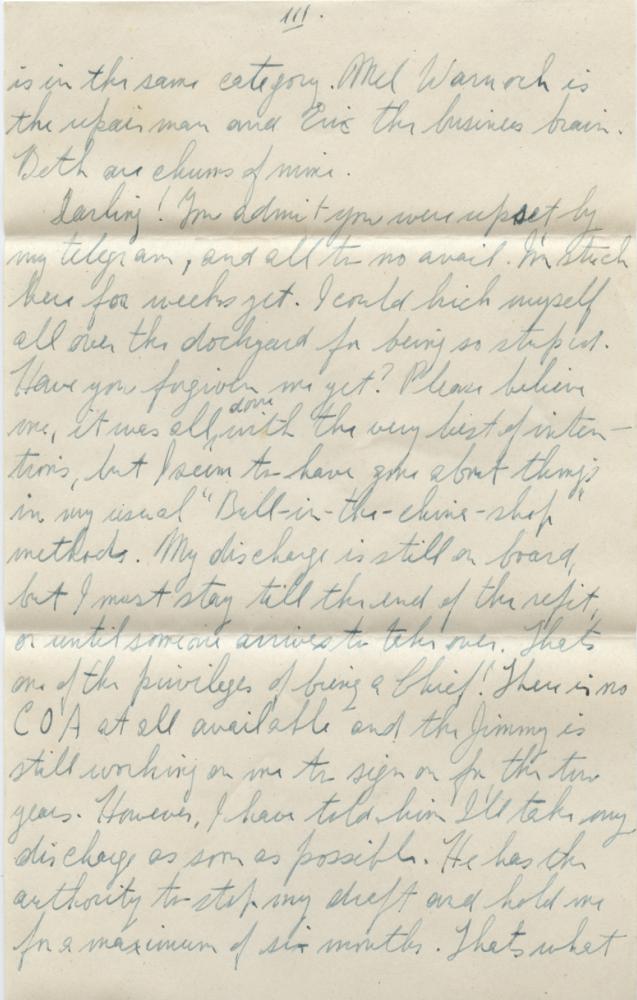 III.
is in the same category. Mel Warnock is
the repair man and Eric the business brain.
Both are chums of mine.
Darling! You admit you were upset by
my telegram, and all to no avail. I'm stuck
here for weeks yet. I could kick myself
all over the dockyard for being so stupid.
Have you forgiven me yet? Please believe
me, it was all done with the very best of inten-
tions, but I seem to have gone about things
in my usual "Bull-in-the-china-shop"
methods. My discharge is still on board,
but I must stay till the end of the refit,
or until someone arrives to take over. That's
one of the privileges of being a Chief! There is no
COA at all available and the Jimmy is
still working on me to sign on for the two
years. However, I have told him I'll take my
discharge as soon as possible. He has the
authority to stop my draft and hold me
for a maximum of six months. That's what